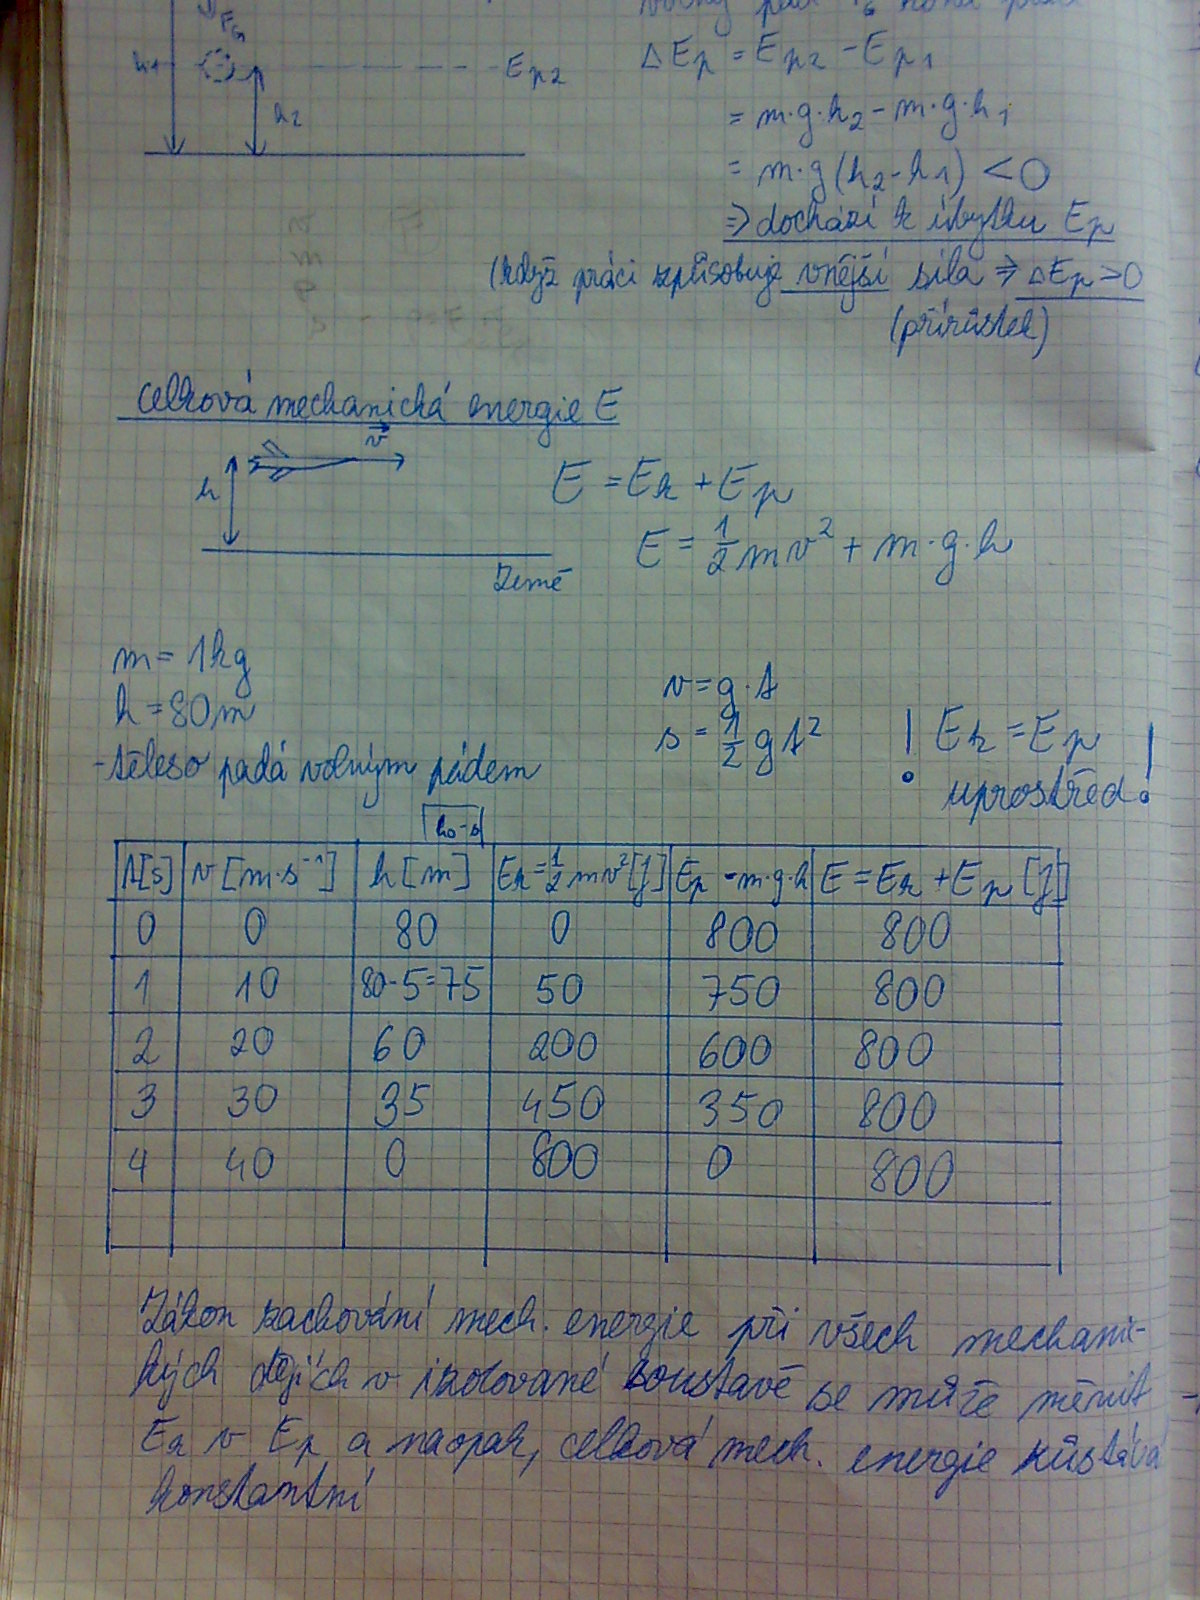 F_G
h1
E_p2
h_2
ΔE_p = E_p2 - E_p1
= m·g·h_2 - m·g·h_1
= m·g(h_2 - h_1) < 0
⇒ dochází k úbytku E_p
(když práci způsobuje vnější síla ⇒ ΔE_p > 0
(přírůstek)
Celková mechanická energie E
v
h
E = E_k + E_p
E = 1/2 mv² + m·g·h
Země
m = 1kg
h = 80m
- těleso padá volným pádem
v = g·t
s = 1/2 g t²
! E_k = E_p
uprostřed!
h_0 - s
t[s] v[m·s⁻¹] h[m] E_k = 1/2 mv² [J] E_p = m·g·h E = E_k + E_p [J]
0 0 80 0 800 800
1 10 80-5=75 50 750 800
2 20 60 200 600 800
3 30 35 450 350 800
4 40 0 800 0 800
Zákon zachování mech. energie při všech mechanic-
kých dějích v izolované soustavě se může měnit
E_k v E_p a naopak, celková mech. energie zůstává
konstantní